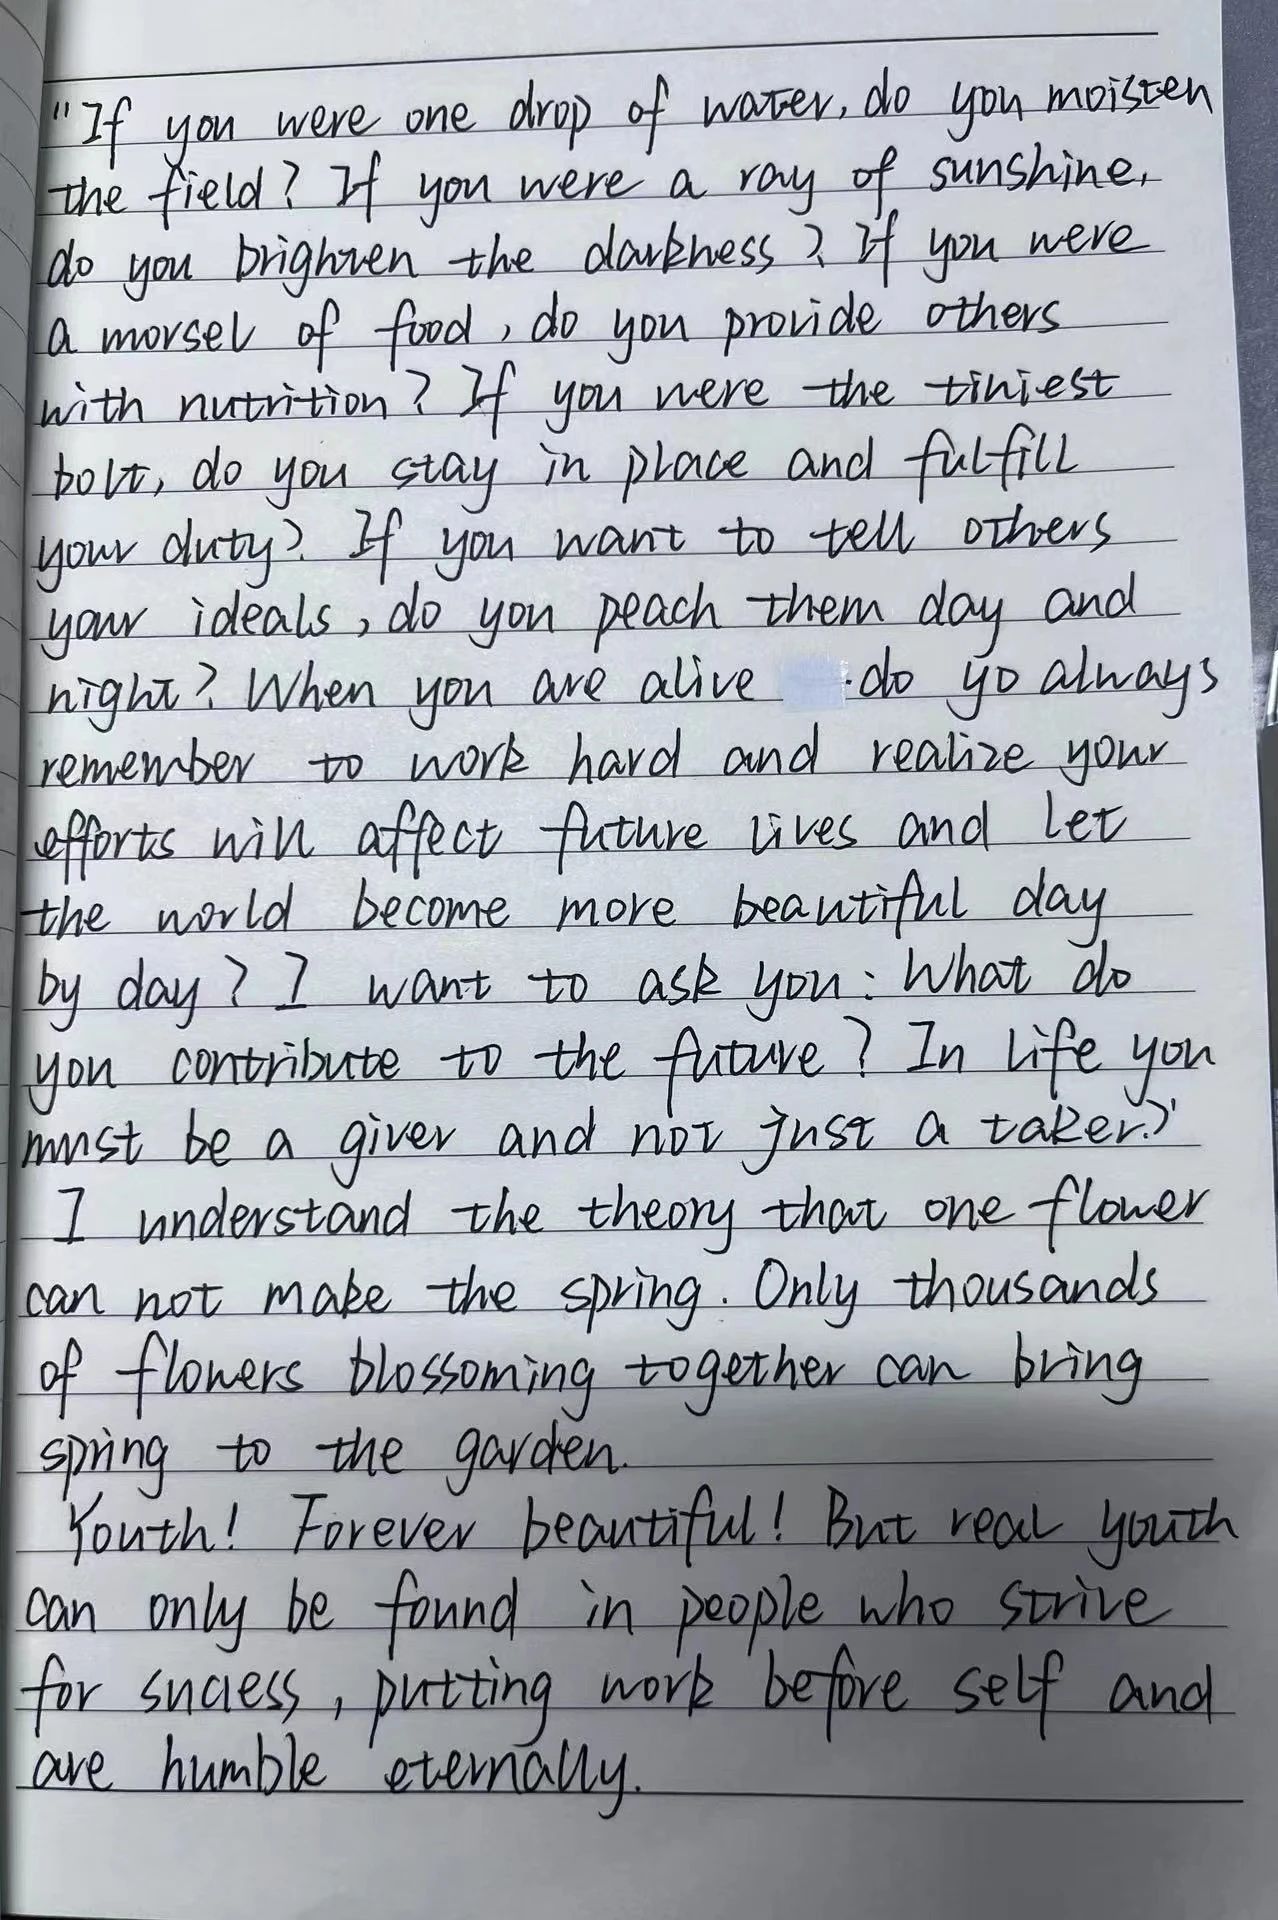 "If you were one drop of water, do you moisten
the field? If you were a ray of sunshine,
do you brighten the darkness? If you were
a morsel of food, do you provide others
with nutrition? If you were the tiniest
bolt, do you stay in place and fulfill
your duty? If you want to tell others
your ideals, do you peach them day and
night? When you are alive .do yo always
remember to work hard and realize your
efforts will affect future lives and let
the world become more beautiful day
by day? I want to ask you: What do
you contribute to the future? In life you
must be a giver and not just a taker."
I understand the theory that one flower
can not make the spring. Only thousands
of flowers blossoming together can bring
spring to the garden.
Youth! Forever beautiful! But real youth
can only be found in people who strive
for success, putting work before self and
are humble eternally.